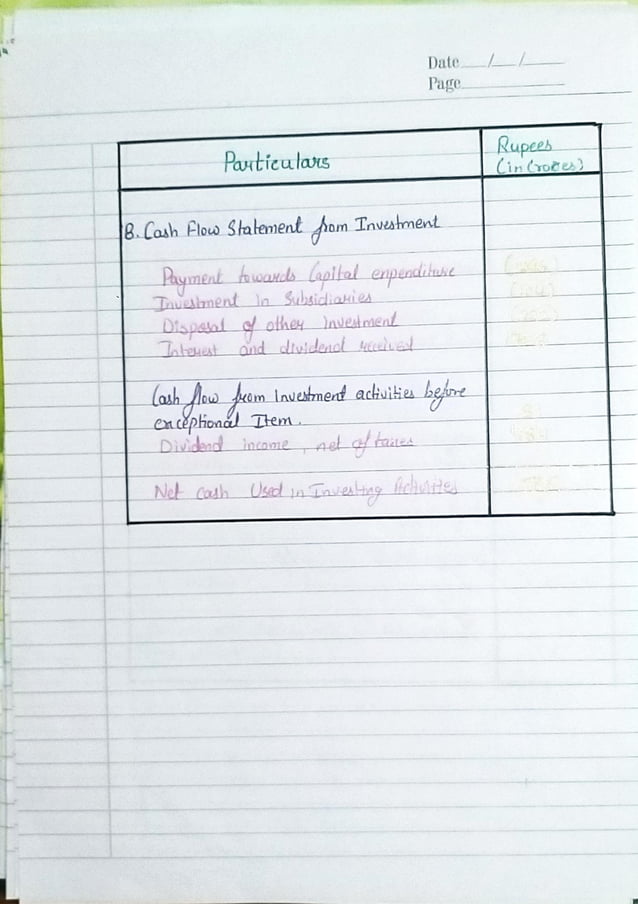 Date __/__/____
Page
Particulars
Rupees
(in Crores)
B. Cash Flow Statement from Investment
Payment towards Capital enpenditure
Investment in Subsidiaries
Disposal of other investment
Interest and dividend received
Cash flow from Investment activities before
exceptional Item.
Dividend income, net of taxes
Net cash Used in Investing Activities